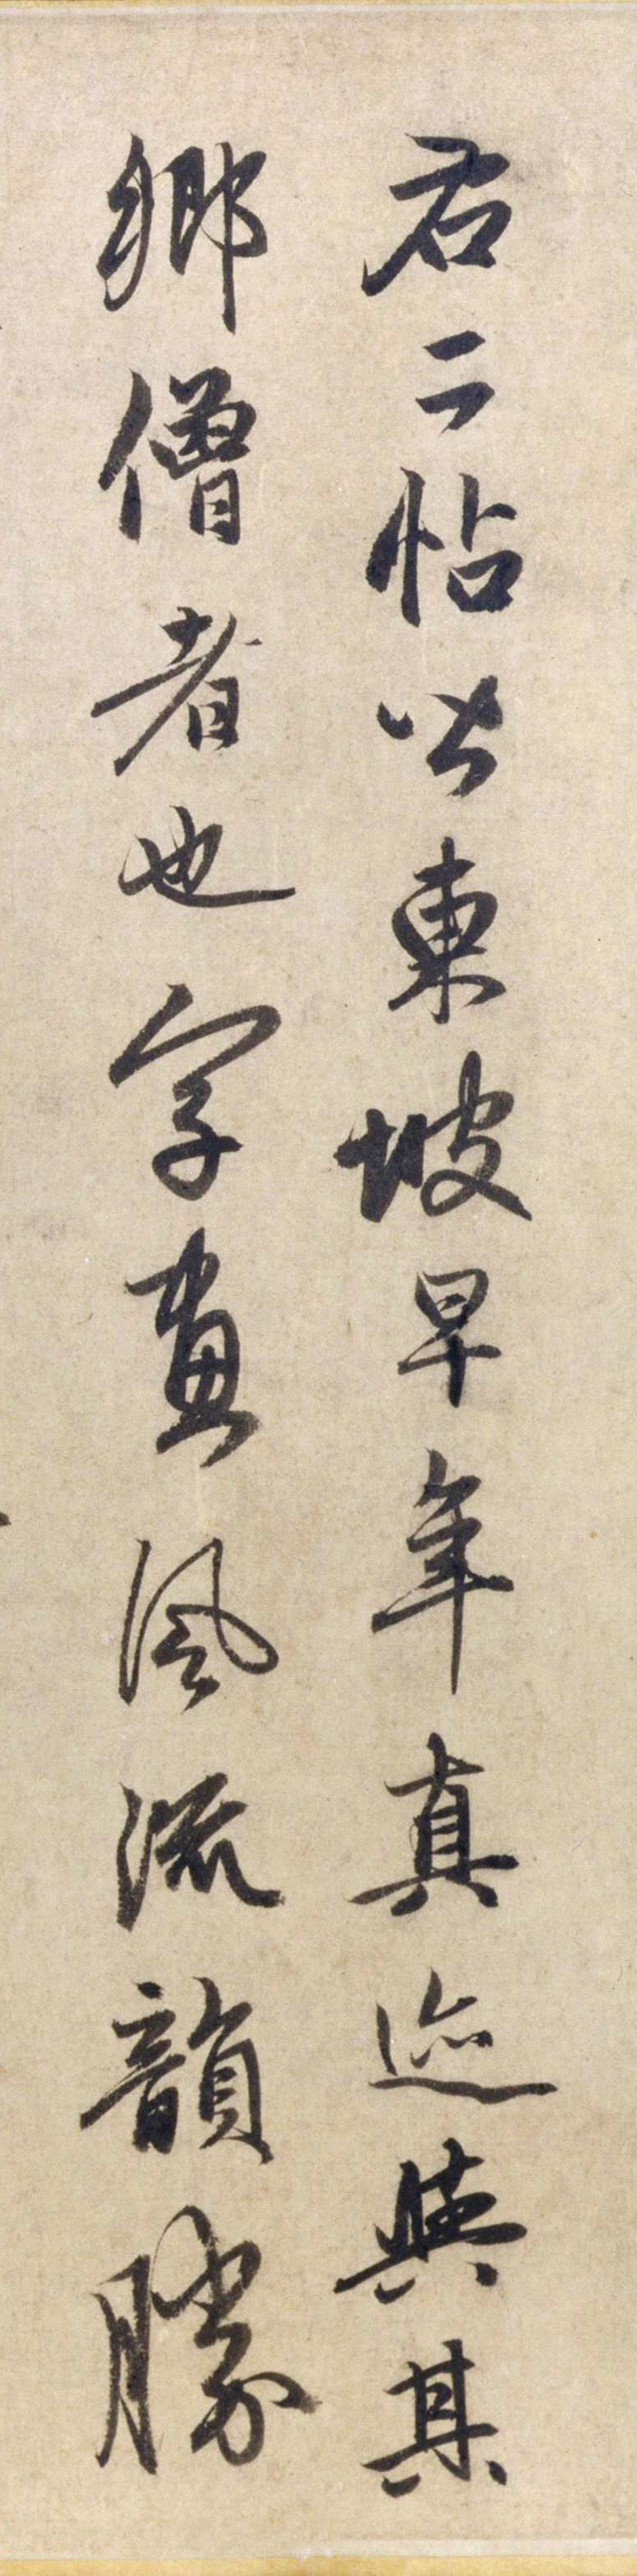 右二帖皆東坡早年真迹與其
鄉僧者也字畫風流韻勝